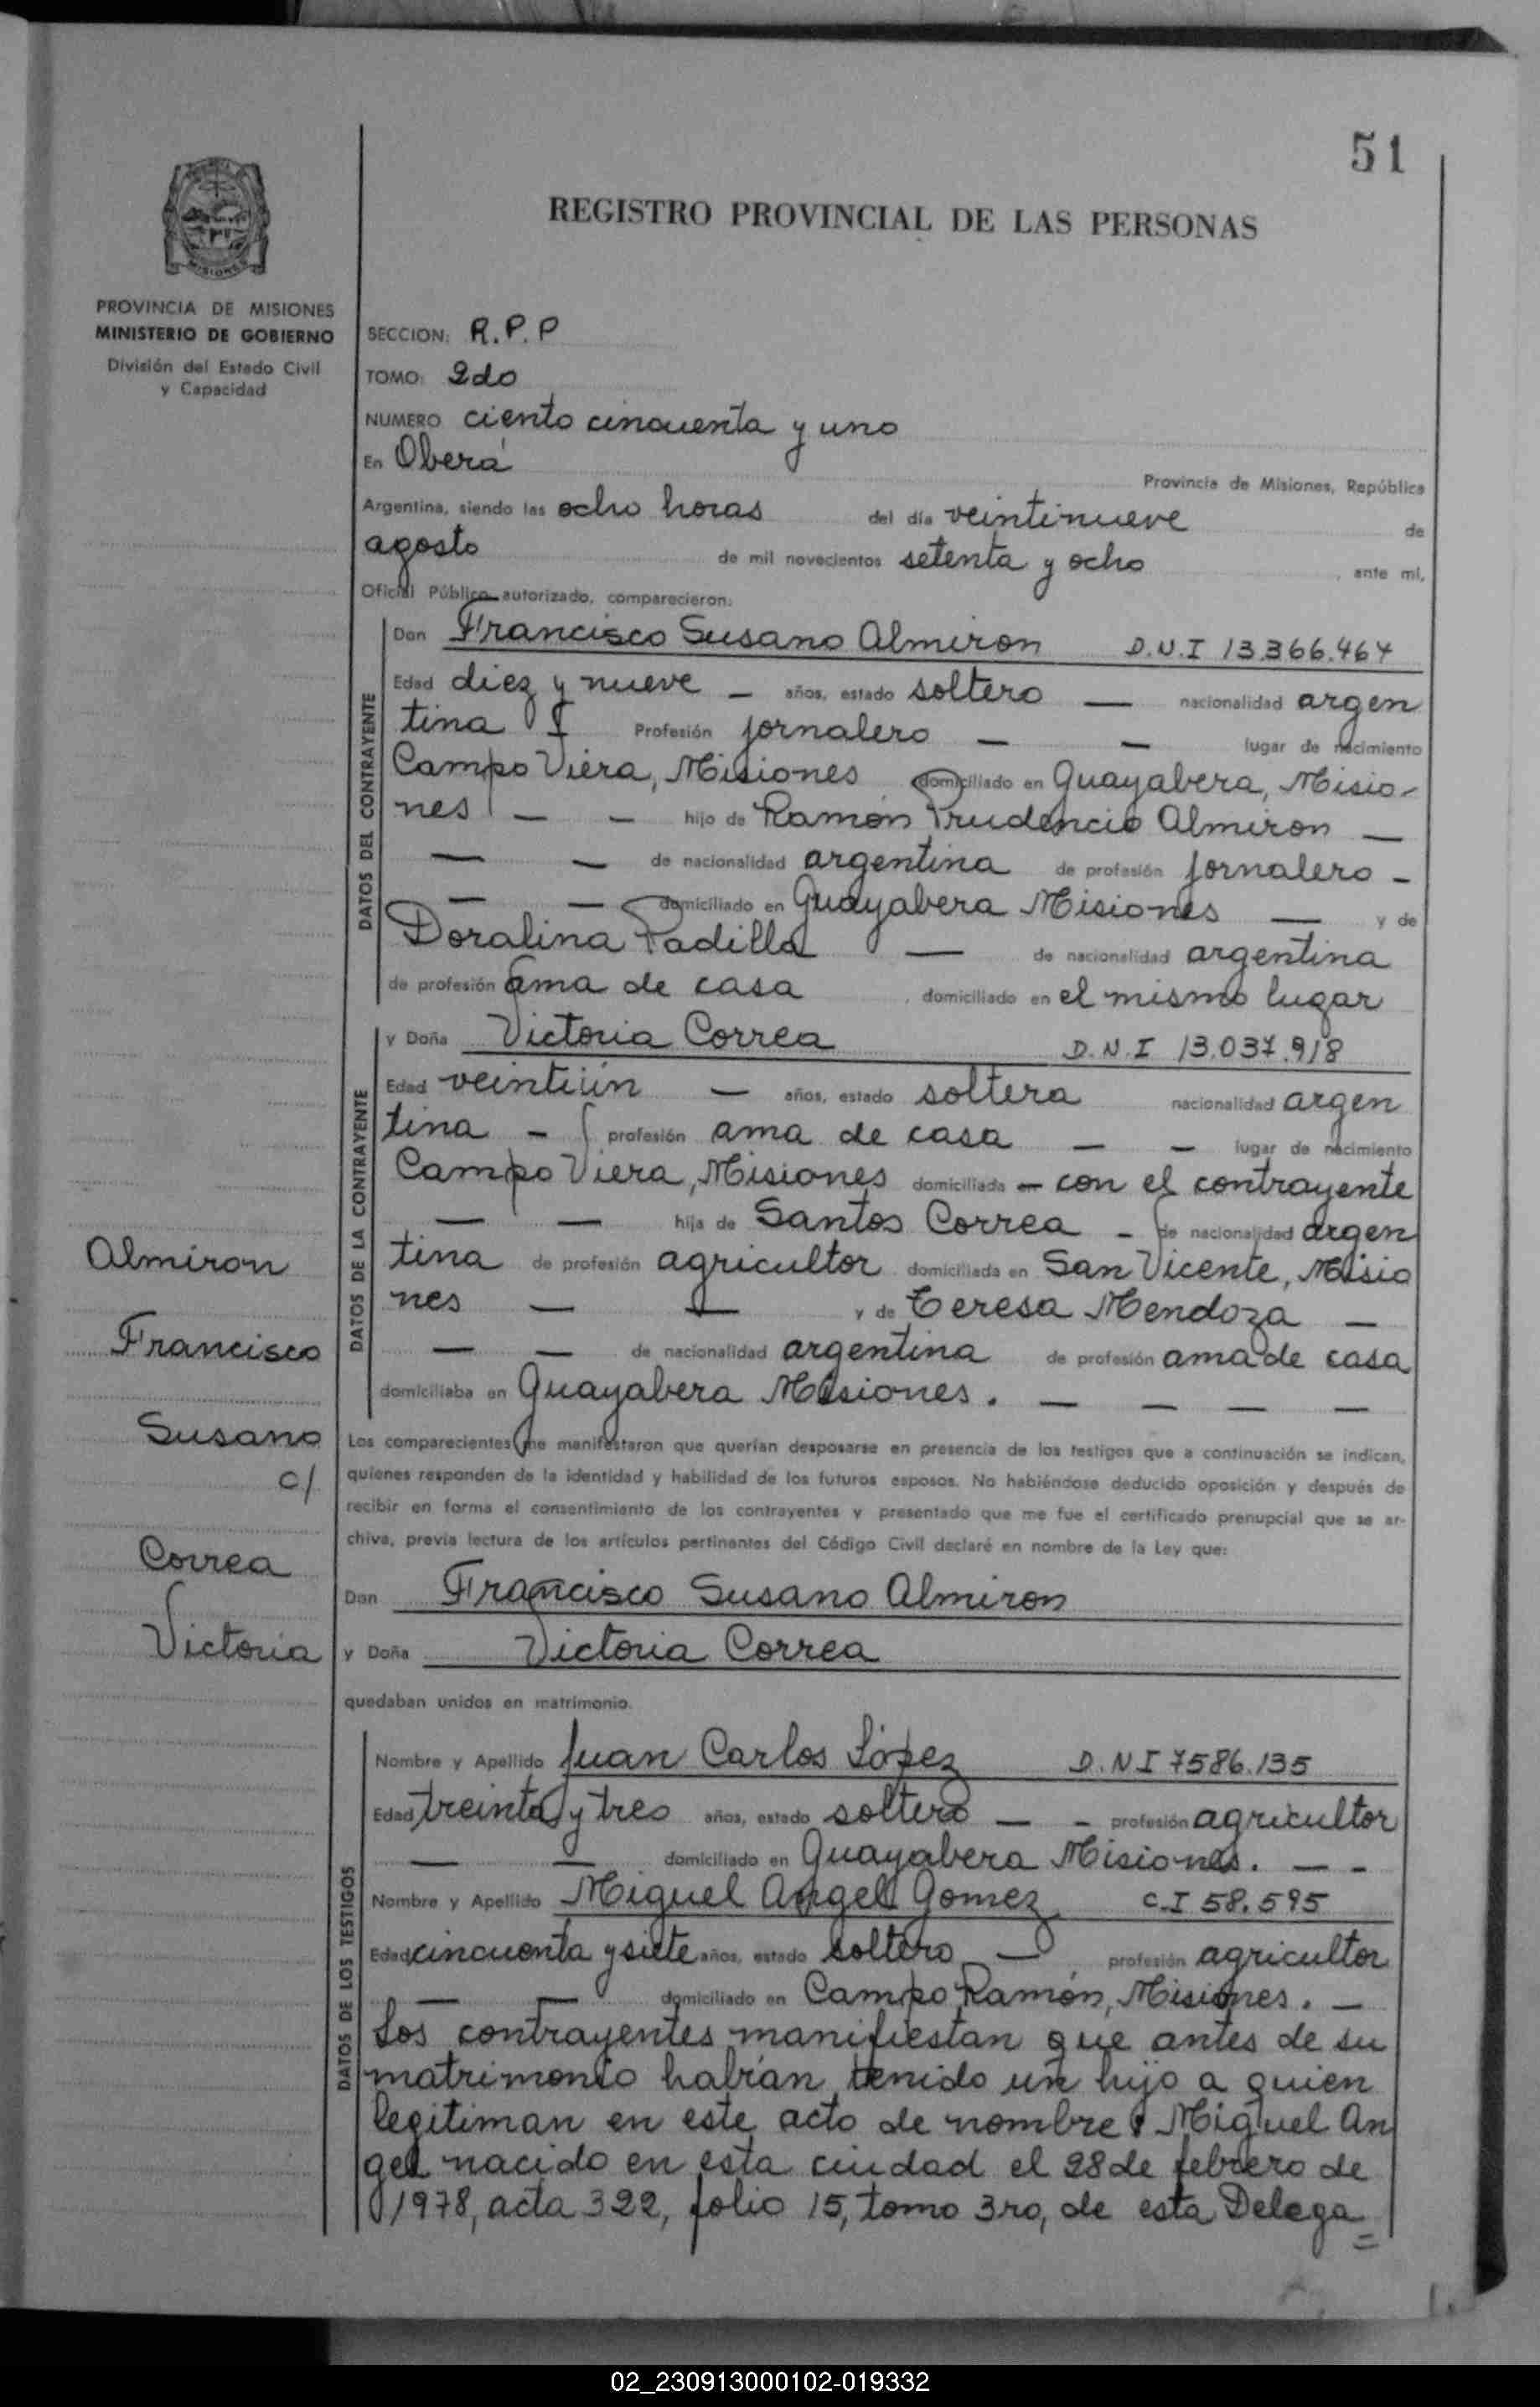 51
REGISTRO PROVINCIAL DE LAS PERSONAS
MISIONES
PROVINCIA DE MISIONES
MINISTERIO DE GOBIERNO
División del Estado Civil
y Capacidad
SECCION: R.P.P
TOMO: 2do
NUMERO ciento cincuenta y uno
En Oberá
Provincia de Misiones, República
Argentina, siendo las ocho horas del día veintinueve de
agosto de mil novecientos setenta y ocho, ante mi,
Oficial Público autorizado, comparecieron:
DATOS DEL CONTRAYENTE
Don Francisco Susano Almiron D.N.I 13.366.464
Edad diez y nueve — años, estado soltero — nacionalidad argen
tina Profesión jornalero — — lugar de nacimiento
Campo Viera, Misiones domiciliado en Guayabera, Misio-
nes — — hijo de Ramón Prudencio Almiron —
— — de nacionalidad argentina de profesión jornalero -
— — domiciliado en Guayabera Misiones — y de
Doralina Padilla — de nacionalidad argentina
de profesión ama de casa, domiciliado en el mismo lugar
DATOS DE LA CONTRAYENTE
y Doña Victoria Correa D.N.I 13.037.918
Edad veintiún — años, estado soltera nacionalidad argen
tina - profesión ama de casa — — lugar de nacimiento
Campo Viera, Misiones domiciliada en — con el contrayente
— — hija de Santos Correa - de nacionalidad argen
tina de profesión agricultor domiciliada en San Vicente, Misio
nes — — y de Teresa Mendoza —
— — de nacionalidad argentina de profesión ama de casa
domiciliaba en Guayabera Misiones. — — — —
Los comparecientes me manifestaron que querían desposarse en presencia de los testigos que a continuación se indican,
quienes responden de la identidad y habilidad de los futuros esposos. No habiéndose deducido oposición y después de
recibir en forma el consentimiento de los contrayentes y presentado que me fue el certificado prenupcial que se ar-
chiva, previa lectura de los artículos pertinentes del Código Civil declaré en nombre de la Ley que:
Don Francisco Susano Almiron
y Doña Victoria Correa
quedaban unidos en matrimonio.
Almiron
Francisco
Susano
c/
Correa
Victoria
DATOS DE LOS TESTIGOS
Nombre y Apellido Juan Carlos López D.N.I 7586.135
Edad treinta y tres años, estado soltero — - profesión agricultor
— — domiciliado en Guayabera Misiones. — -
Nombre y Apellido Miguel Angel Gomez C.I 58.595
Edad cincuenta y siete años, estado soltero — profesión agricultor
— — domiciliado en Campo Ramón, Misiones. —
Los contrayentes manifiestan que antes de su
matrimonio habían tenido un hijo a quien
legitiman en este acto de nombre Miguel An
gel nacido en esta ciudad el 28 de febrero de
1978, acta 322, folio 15, tomo 3ro, de esta Delega=
02_230913000102-019332